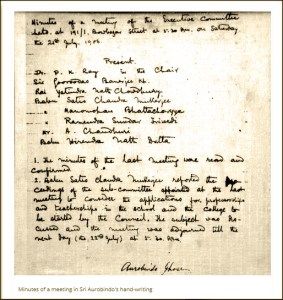 Minutes of a meeting of the Executive Committee
held at 191/1, Bowbazar Street at 5.30 P.M. on Saturday,
the July, 1906
Present.
Dr. P. K. Ray in the Chair
Sir Gooroodas Banerjee Kt.
Rai Yatindra Nath Chowdhury
Babu Satis Chandra Mukherjee
" Manomohan Bhattacharyya
" Ramendra Sundar Trivedi
Mr. A. Chaudhuri
Babu Hirendra Nath Datta
1. The minutes of the last meeting were read and
confirmed.
2. Babu Satis Chandra Mukerjee reported the pro-
ceedings of the sub-committee appointed at the last
meeting to consider the applications for professorships
and teacherships in the school and the college to
be started by the Council. The subject was dis-
cussed and the meeting was adjourned till the
next day (the July) at 5.30 P.M.
Aurobindo Ghose
Minutes of a meeting in Sri Aurobindo's hand-writing